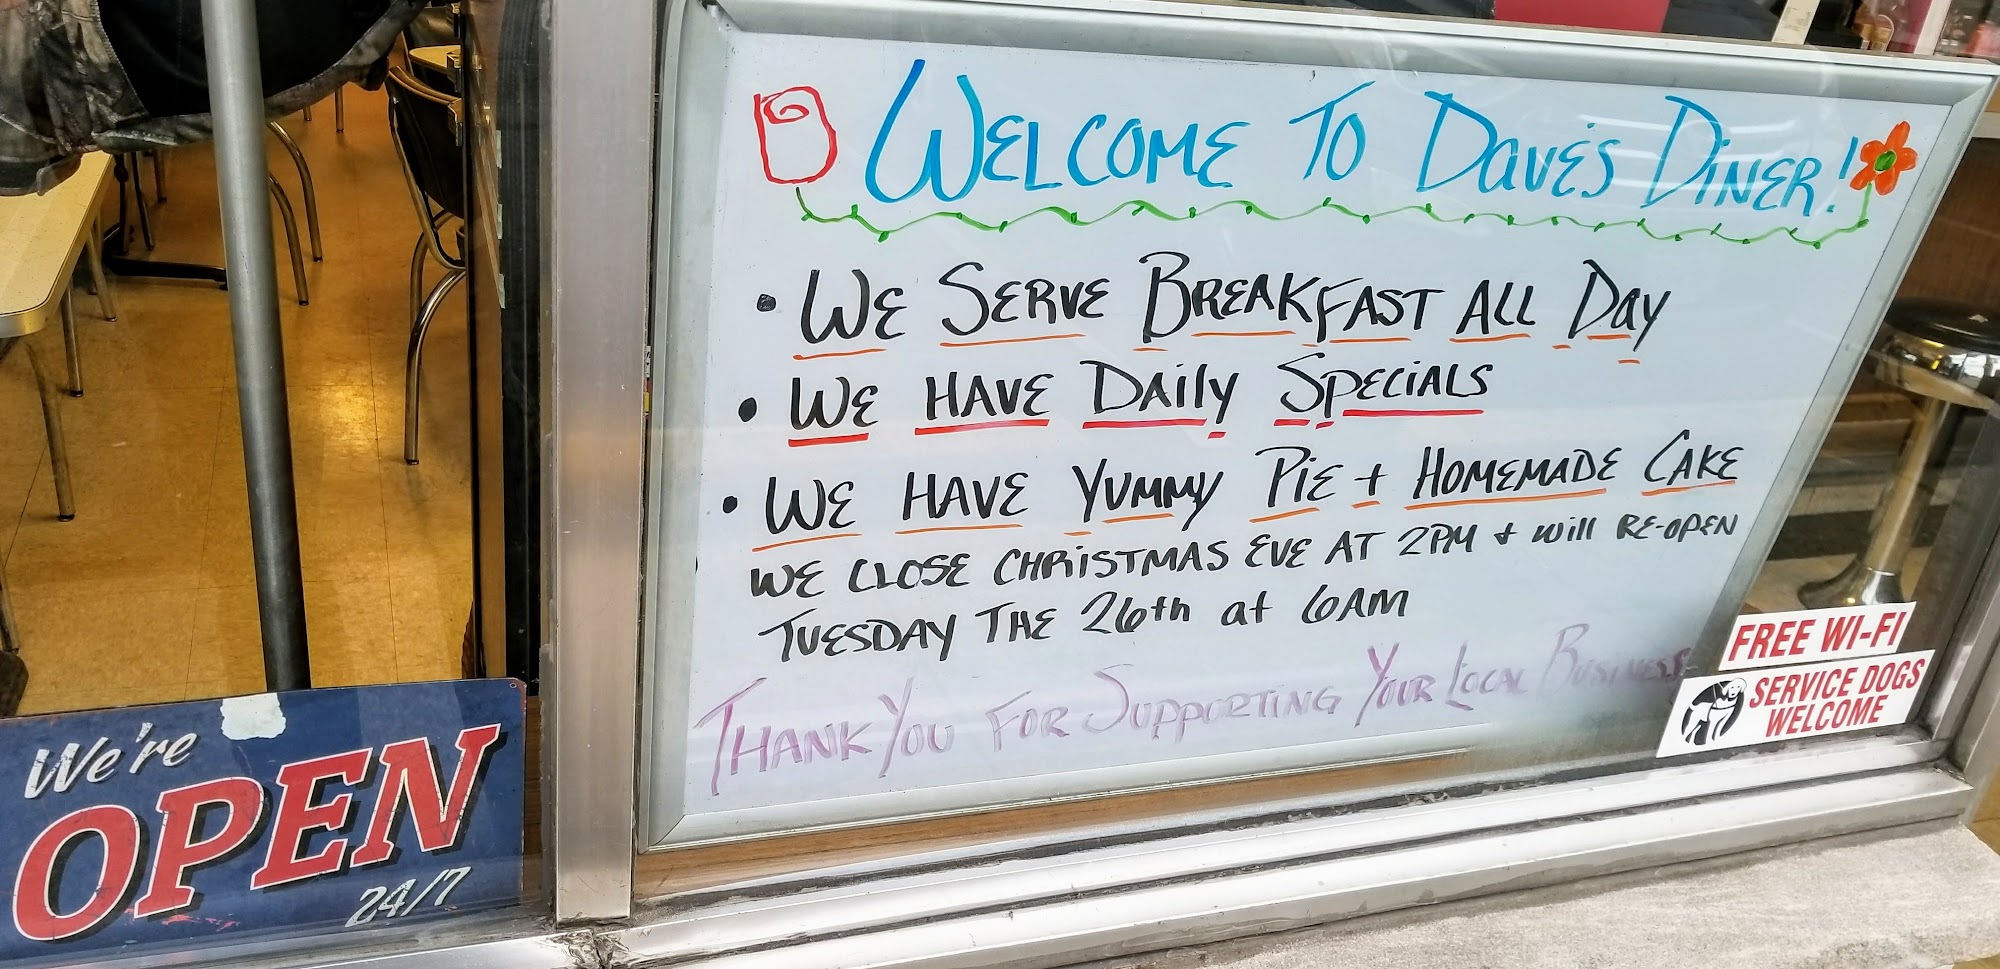 WELCOME TO DAVE'S DINER!
• WE SERVE BREAKFAST ALL DAY
• WE HAVE DAILY SPECIALS
• WE HAVE YUMMY PIE + HOMEMADE CAKE
WE CLOSE CHRISTMAS EVE AT 2PM + will RE-OPEN
TUESDAY THE 26th at 6AM
THANK YOU FOR SUPPORTING YOUR LOCAL BUSINESS
FREE WI-FI
SERVICE DOGS
WELCOME
We're
OPEN
24/7